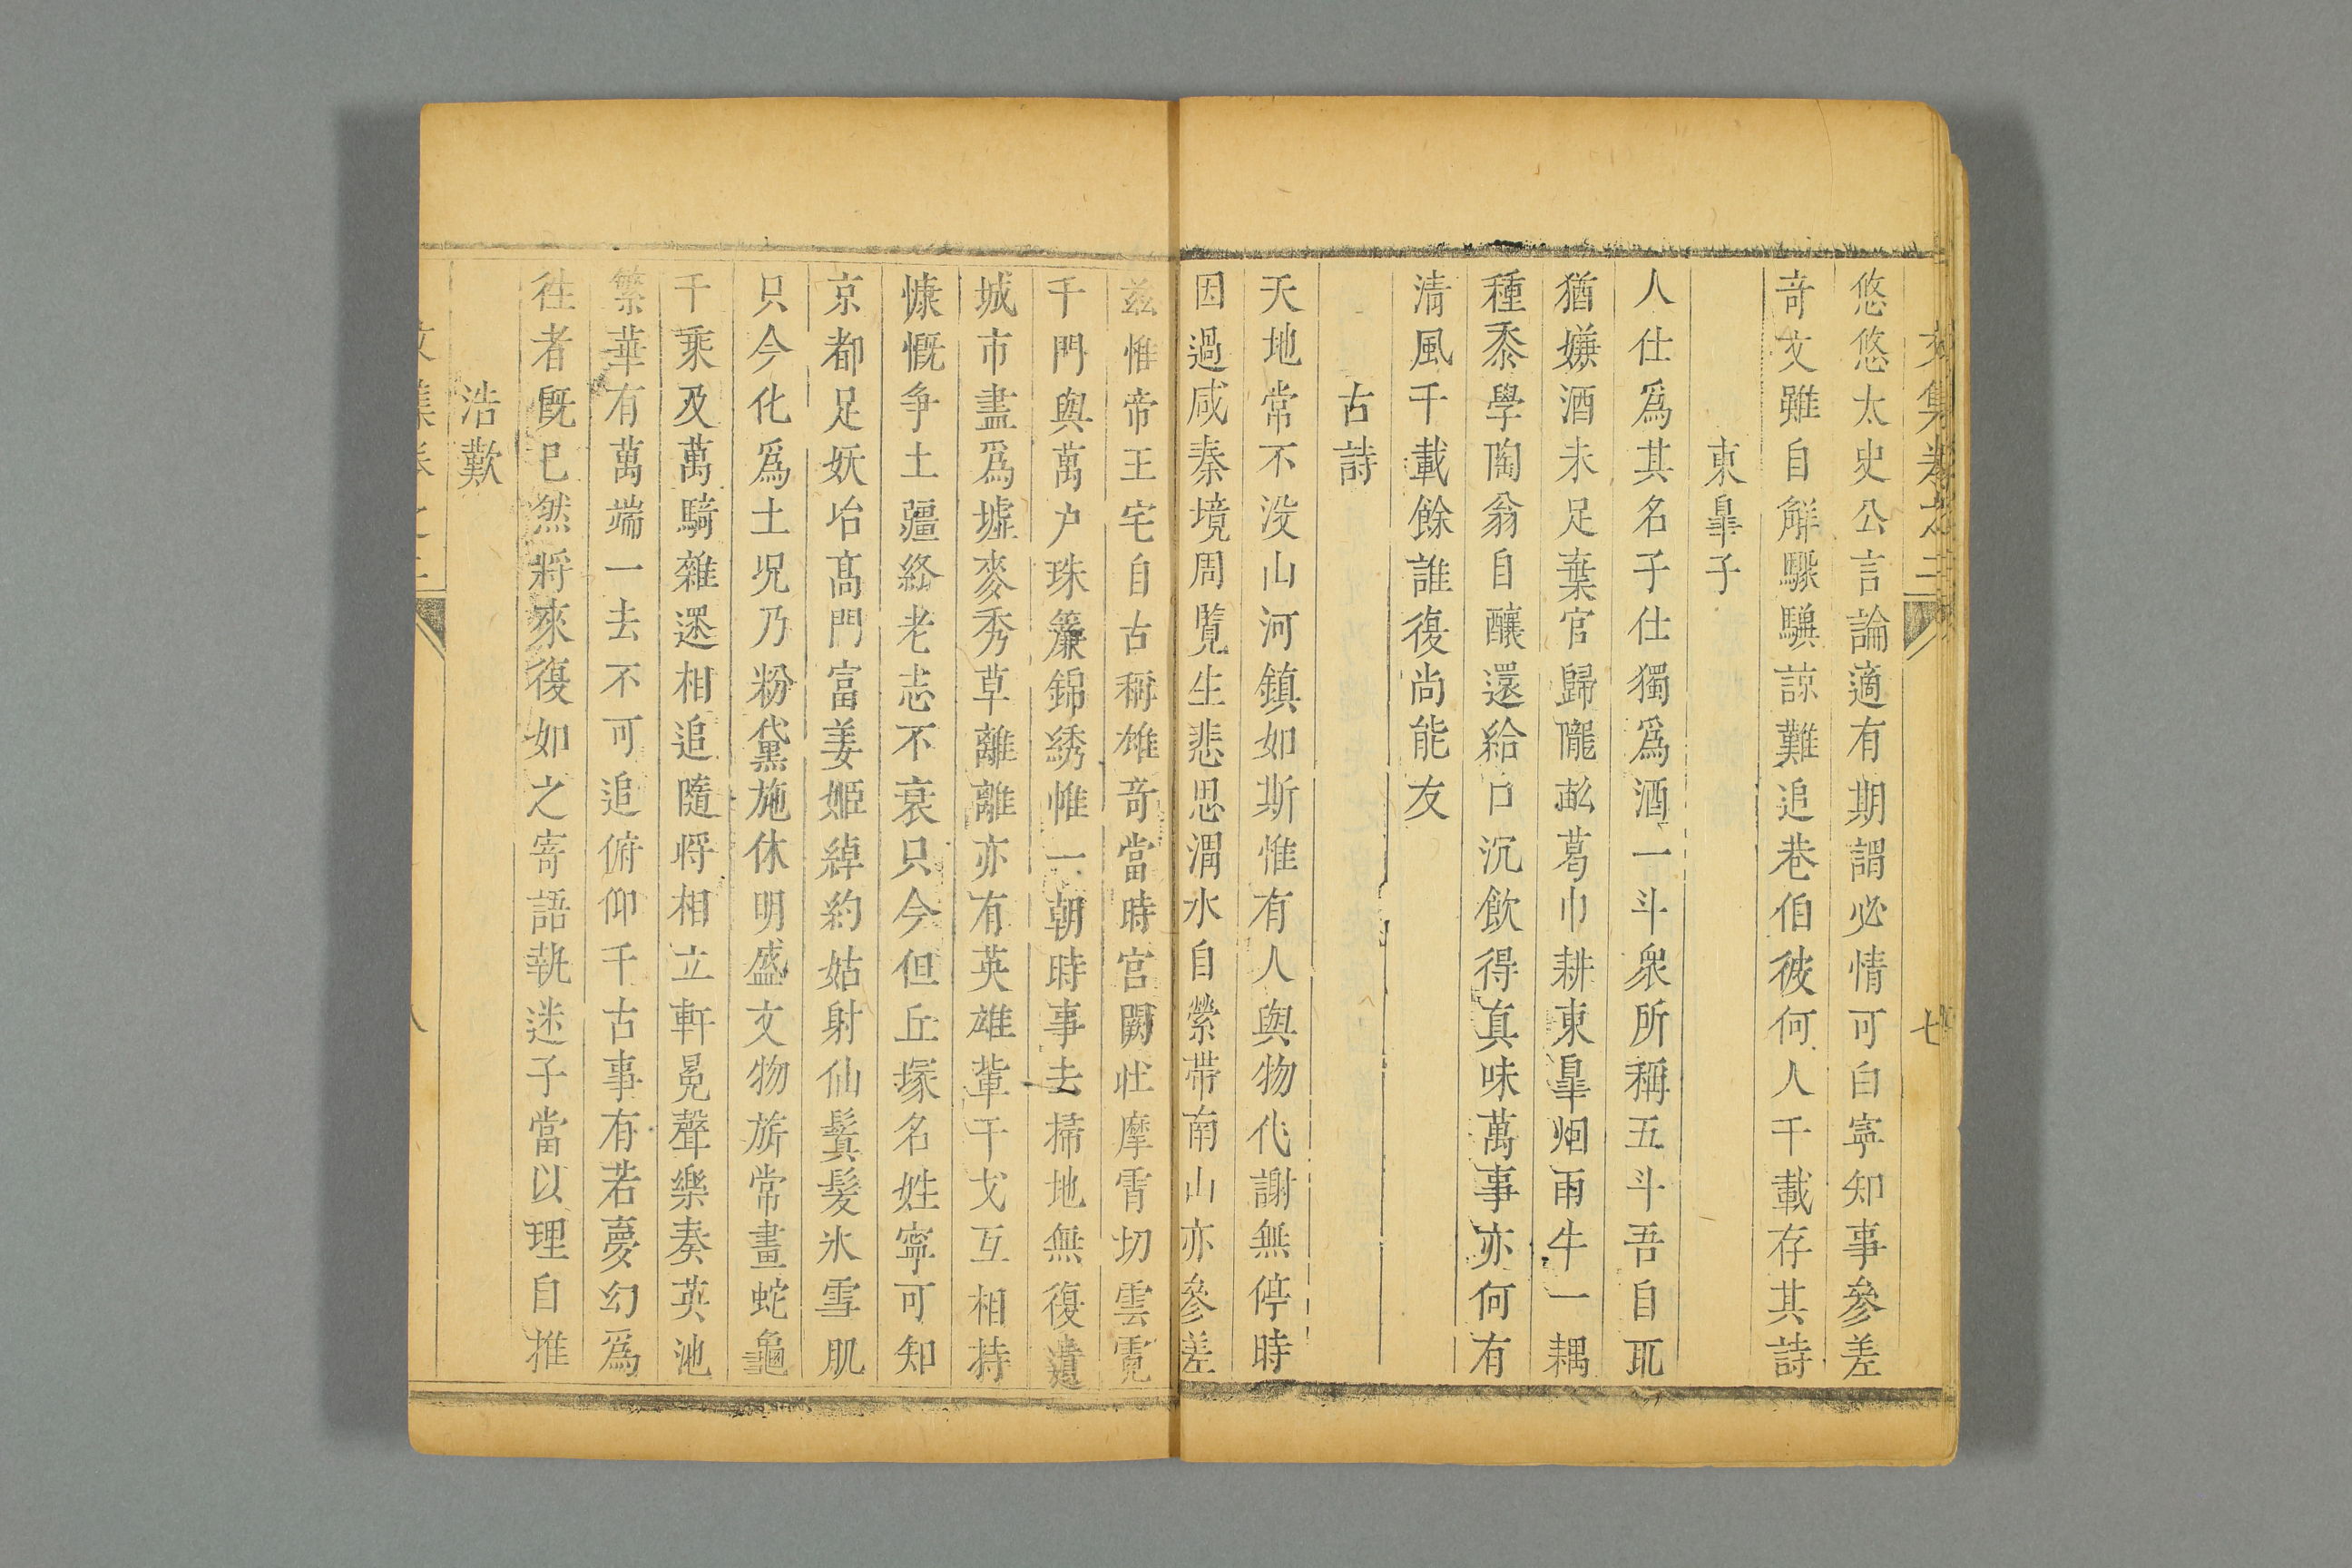 文集卷之三 七
悠悠太史公言論適有期謂必情可白寧知事參差
奇文雖自觧驟驥諒難追巷伯彼何人千載存其詩
東皐子
人仕爲其名子仕獨爲酒一斗衆所稱五斗吾自
猶嫌酒未足棄官歸隴畝葛巾耕東皐烟雨牛一耦
種黍學陶翁自釀還給口沉飲得真味萬事亦何有
清風千載餘誰復尚能友
古詩
天地常不没山河鎮如斯惟有人與物代謝無停時
因過咸秦境周覧生悲思渭水自縈帶南山亦參差
茲惟帝王宅自古稱雄奇當時宫闕壮摩霄切雲霓
千門與萬户珠簾錦綉帷一朝時事去掃地無復遺
城市盡爲墟麥秀草離離亦有英雄軰干戈互相持
慷慨争土疆終老志不衰只今但丘塚名姓寧可知
京都足妖冶髙門富姜姬綽約姑射仙鬒髪氷雪肌
只今化爲土况乃粉黛施休明盛文物旂常畫蛇龜
千乘及萬騎雜遝相追隨將相立軒冕聲樂奏英池
繁華有萬端一去不可追俯仰千古事有若夢幻爲
徃者既已然將來復如之寄語執迷子當以理自推
浩歎
文集卷之三 八